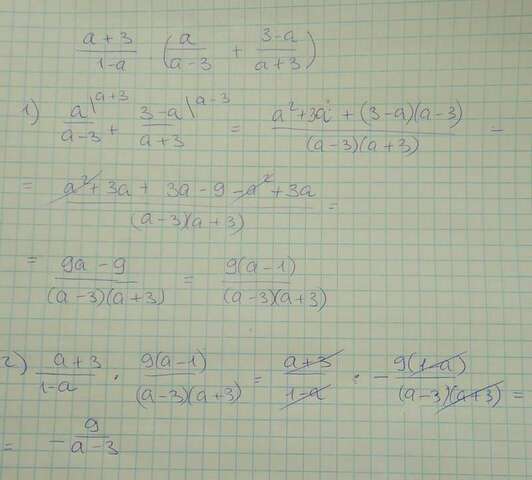 (a+3)/(1-a) · (a/(a-3) + (3-a)/(a+3))
1) a\a+3/(a-3) + 3-a\a-3/(a+3) = (a²+3a + (3-a)(a-3))/((a-3)(a+3)) =
= (a²+3a + 3a-9-a²+3a)/((a-3)(a+3)) =
= (9a-9)/((a-3)(a+3)) = 9(a-1)/((a-3)(a+3))
2) (a+3)/(1-a) · 9(a-1)/((a-3)(a+3)) = (a+3)/(1-a) · - 9(1-a)/((a-3)(a+3)) =
= - 9/(a-3)